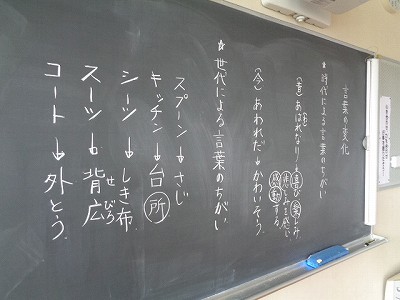 言葉の変化
★時代による言葉のちがい
(昔)あはれなり→喜び 楽しみ
感動する
(今)あわれだ→かわいそう
★世代による言葉のちがい
スプーン→さじ
キッチン→台所
シーツ→しき布
スーツ→背広
せびろ
コート→外とう